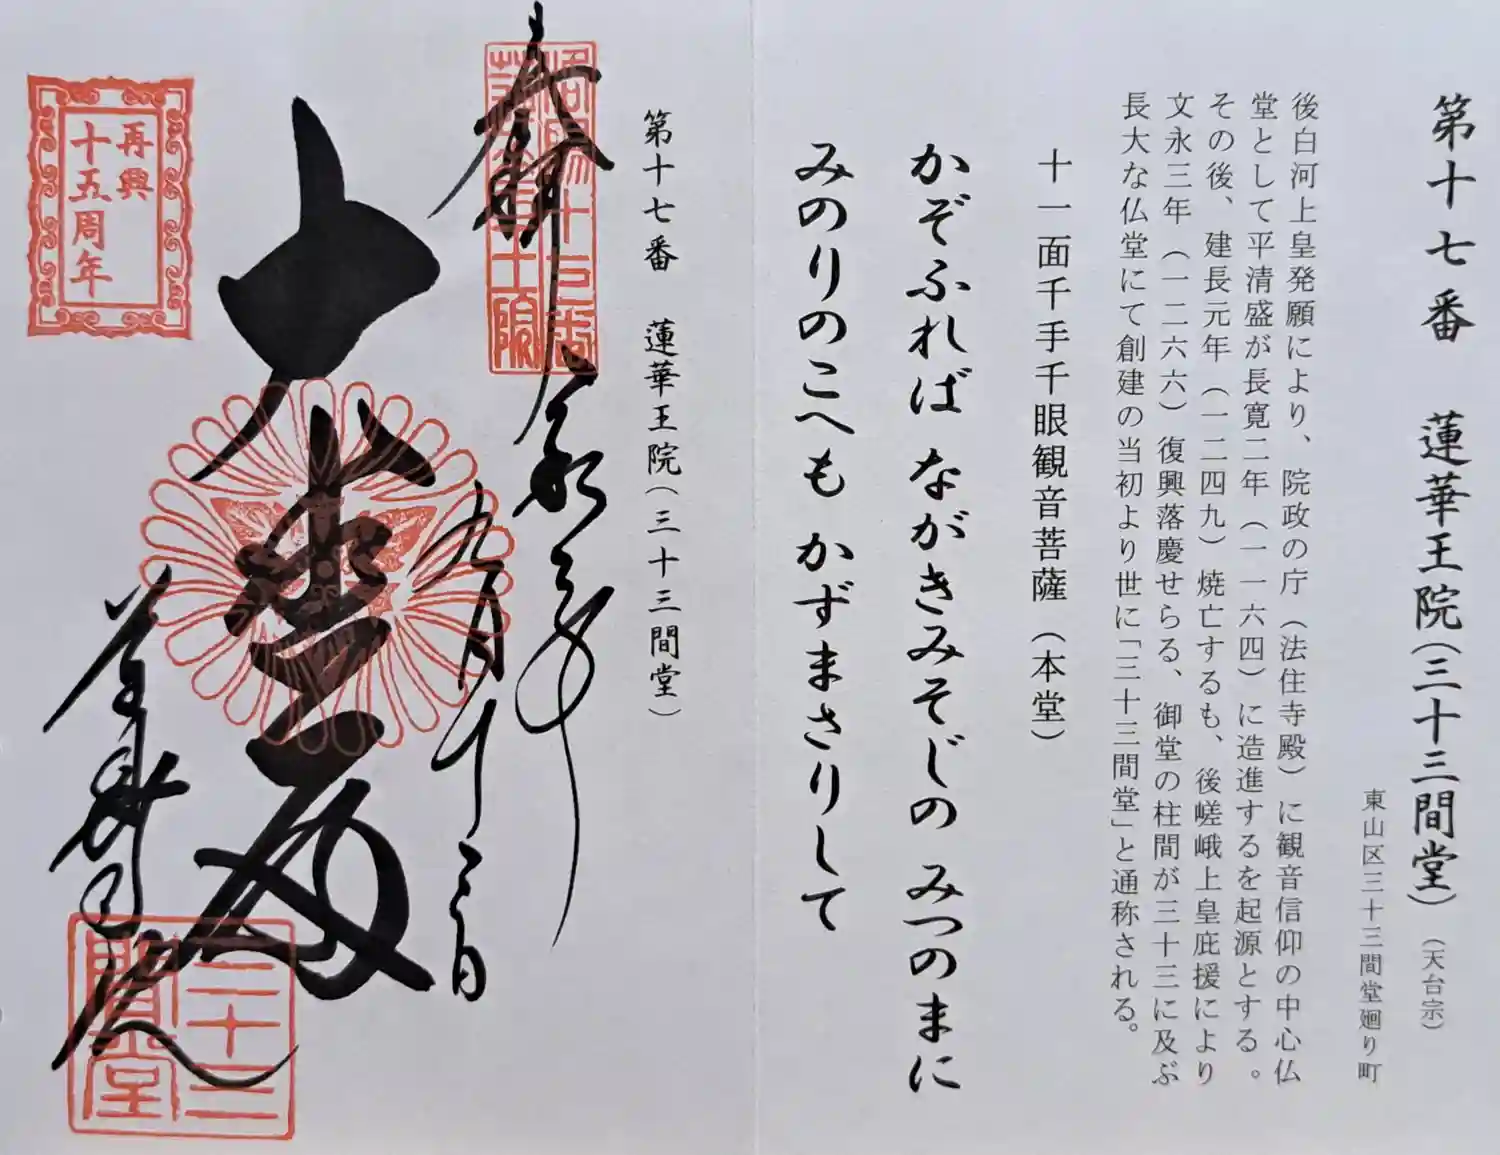 第十七番 蓮華王院(三十三間堂)(天台宗)
東山区三十三間堂廻り町
後白河上皇発願により、院政の庁(法住寺殿)に観音信仰の中心仏
堂として平清盛が長寛二年(一一六四)に造進するを起源とする。
その後、建長元年(一二四九)焼亡するも、後嵯峨上皇庇援により
文永三年(一二六六)復興落慶せらる、御堂の柱間が三十三に及ぶ
長大な仏堂にて創建の当初より世に「三十三間堂」と通称される。
十一面千手千眼観音菩薩(本堂)
かぞふれば ながきみそじの みつのまに
みのりのこへも かずまさりして
第十七番 蓮華王院(三十三間堂)
奉拝
九月十二日
大悲殿
三十三間堂
再興
十五周年